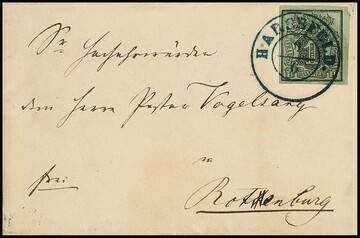 HARPSTEDT
Sr Hochehrwürden
dem Herrn Pastor Vogelsang
in
frei
Rothenburg